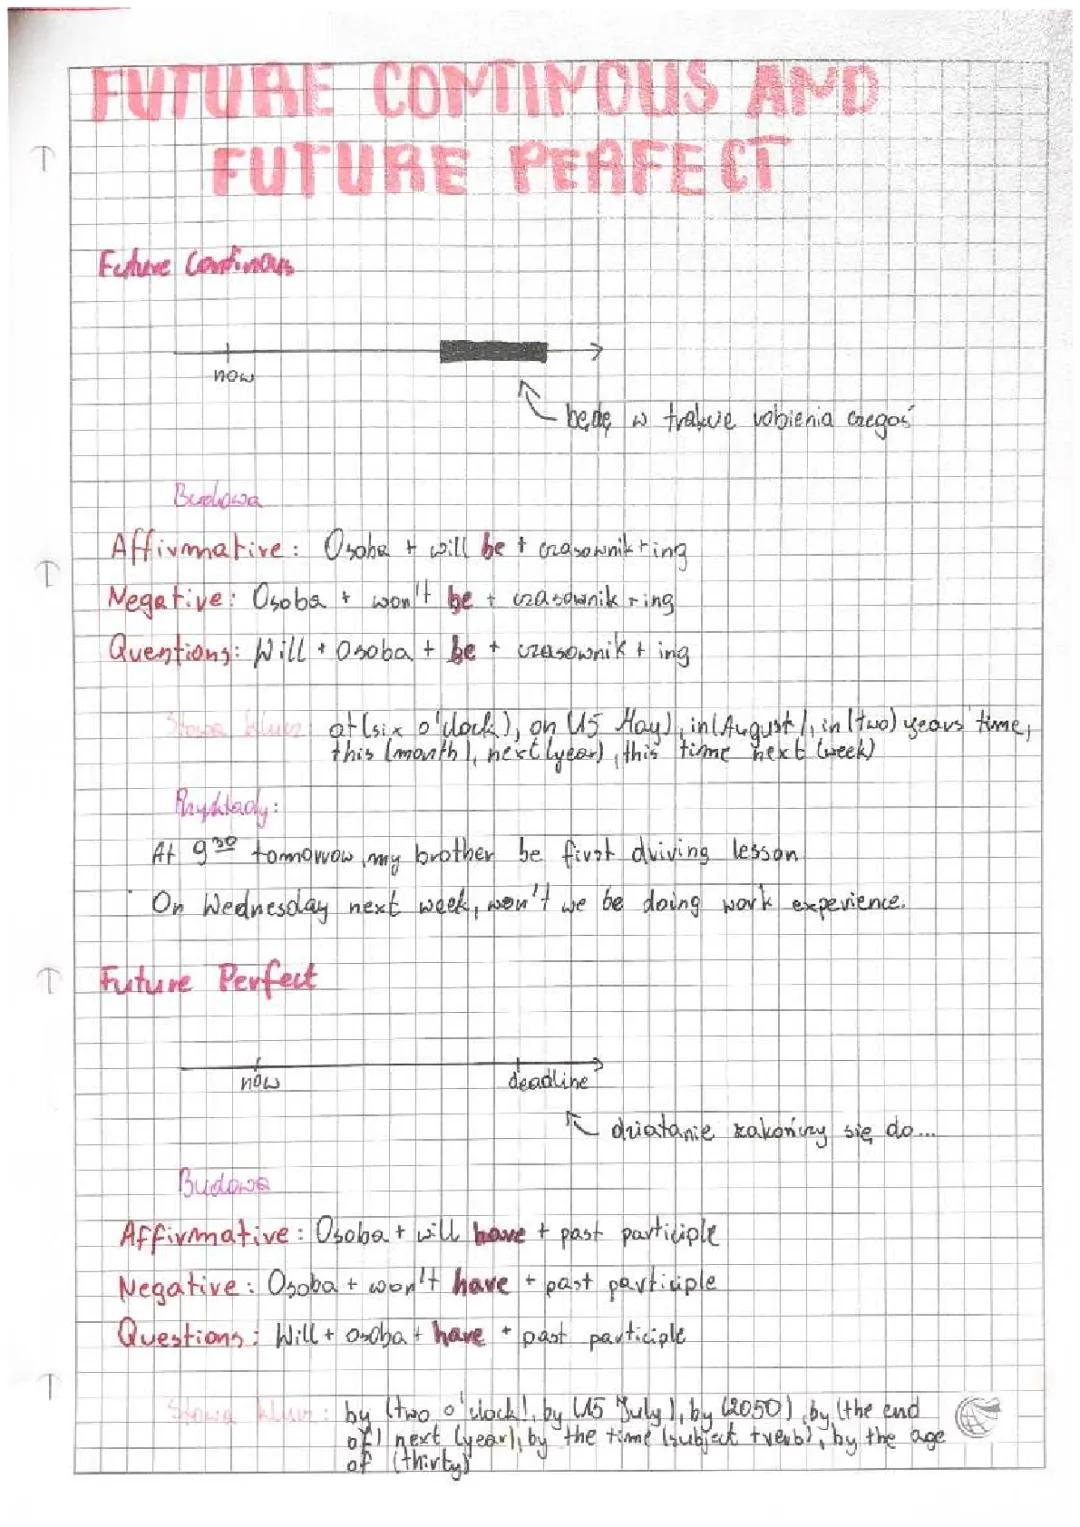 FUTURE CONTINOUS AND
FUTURE PERFECT
Future Continous
now
będę w trakcie robienia czegoś
Budowa
Affirmative: Osoba + will be + czasownik + ing
Negative: Osoba + won't be + czasownik + ing
Questions: Will + Osoba + be + czasownik + ing
Słowa klucz: at (six o'clock), on (15 May), in (August), in (two) years' time,
this (month), next (year), this time next (week)
Przykłady:
At 9³⁰ tomorrow my brother be first driving lesson
On Wednesday next week, won't we be doing work experience.
Future Perfect
now
deadline
działanie zakończy się do...
Budowa
Affirmative: Osoba + will have + past participle
Negative: Osoba + won't have + past participle
Questions: Will + osoba + have + past participle
Słowa klucz: by (two o'clock), by (15 July), by (2050), by (the end
of) next (year), by the time (subject + verb), by the age
of (thirty)